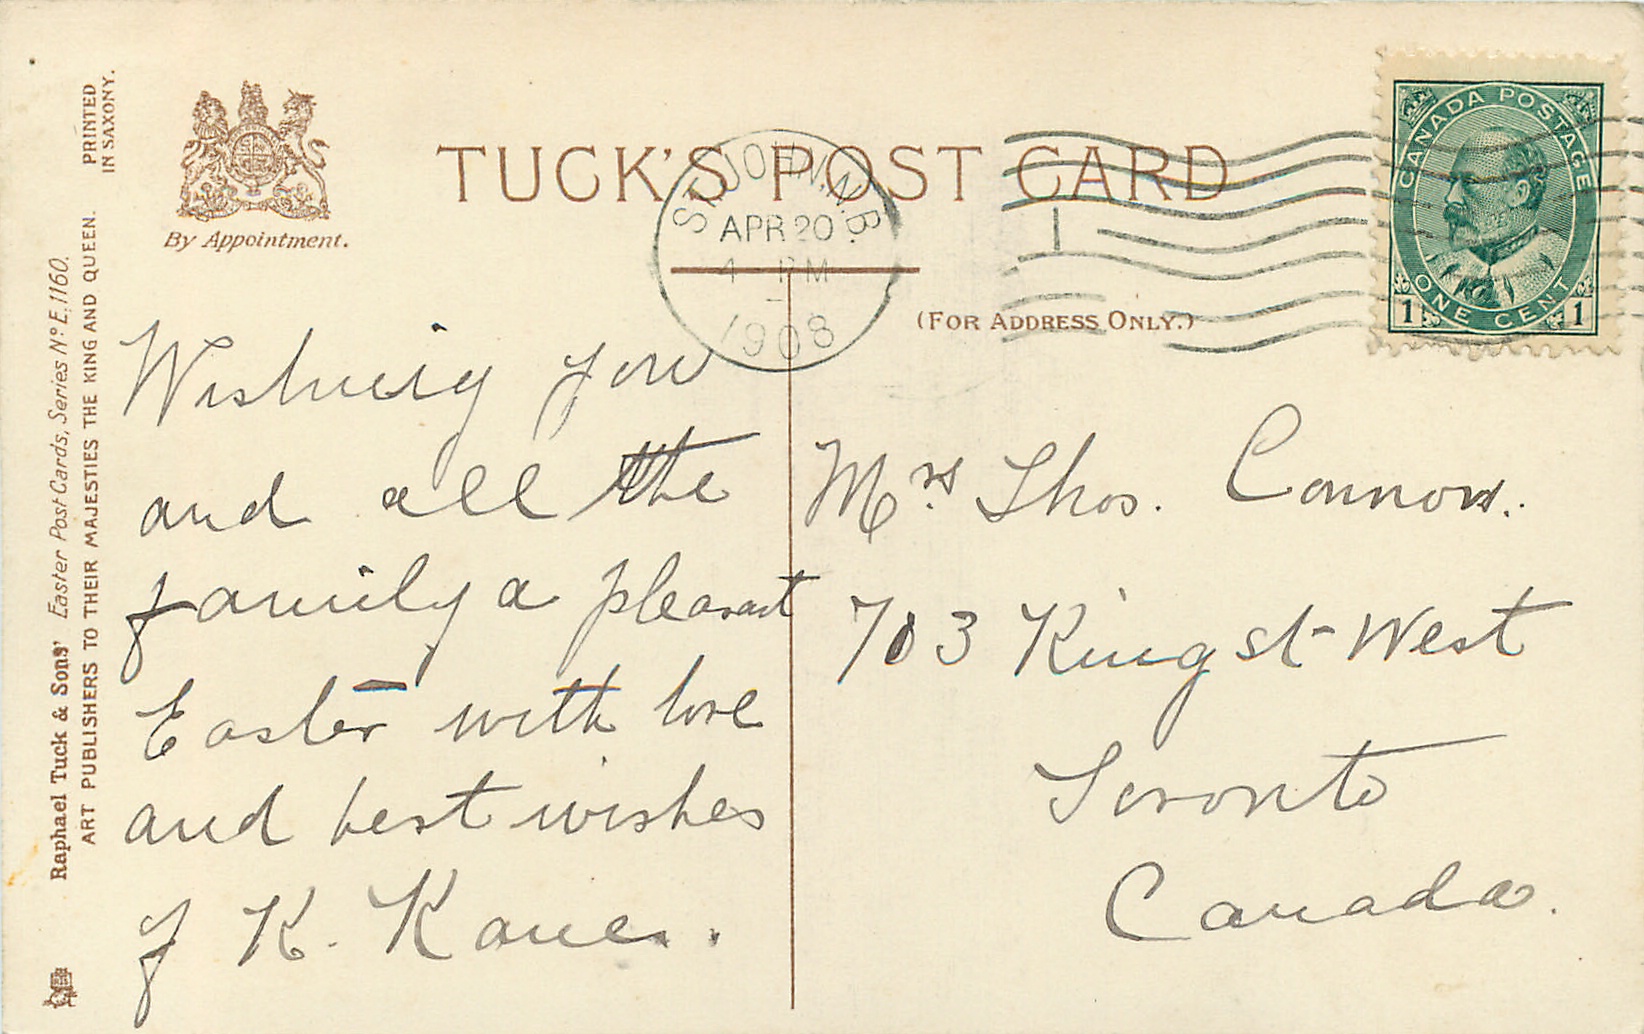 PRINTED
IN SAXONY.
Raphael Tuck & Sons' Easter Post Cards, Series Nº E. 1160.
ART PUBLISHERS TO THEIR MAJESTIES THE KING AND QUEEN.
By Appointment.
TUCK'S POST CARD
ST. JOHN. N.B.
APR 20
4 PM
1908
CANADA POSTAGE
ONE CENT
1 1
(FOR ADDRESS ONLY.)
Wishing you
and all the
family a pleasant
Easter with love
and best wishes
of K. Kane.
Mrs Thos. Connors.
703 King st West
Toronto
Canada.